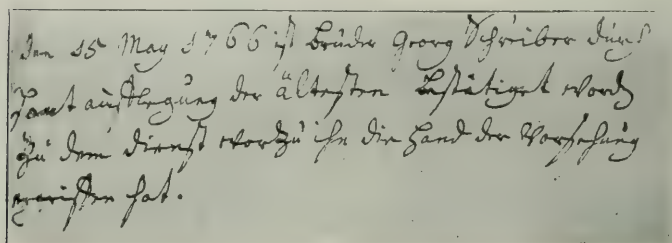 den 15 May 1766 ist brüder Georg Schreiber durch
Hant aufflegung der ältesten bestätiget word
zu dem dienst worzu ihn die Hand der Vorsehung
gerissen hat.